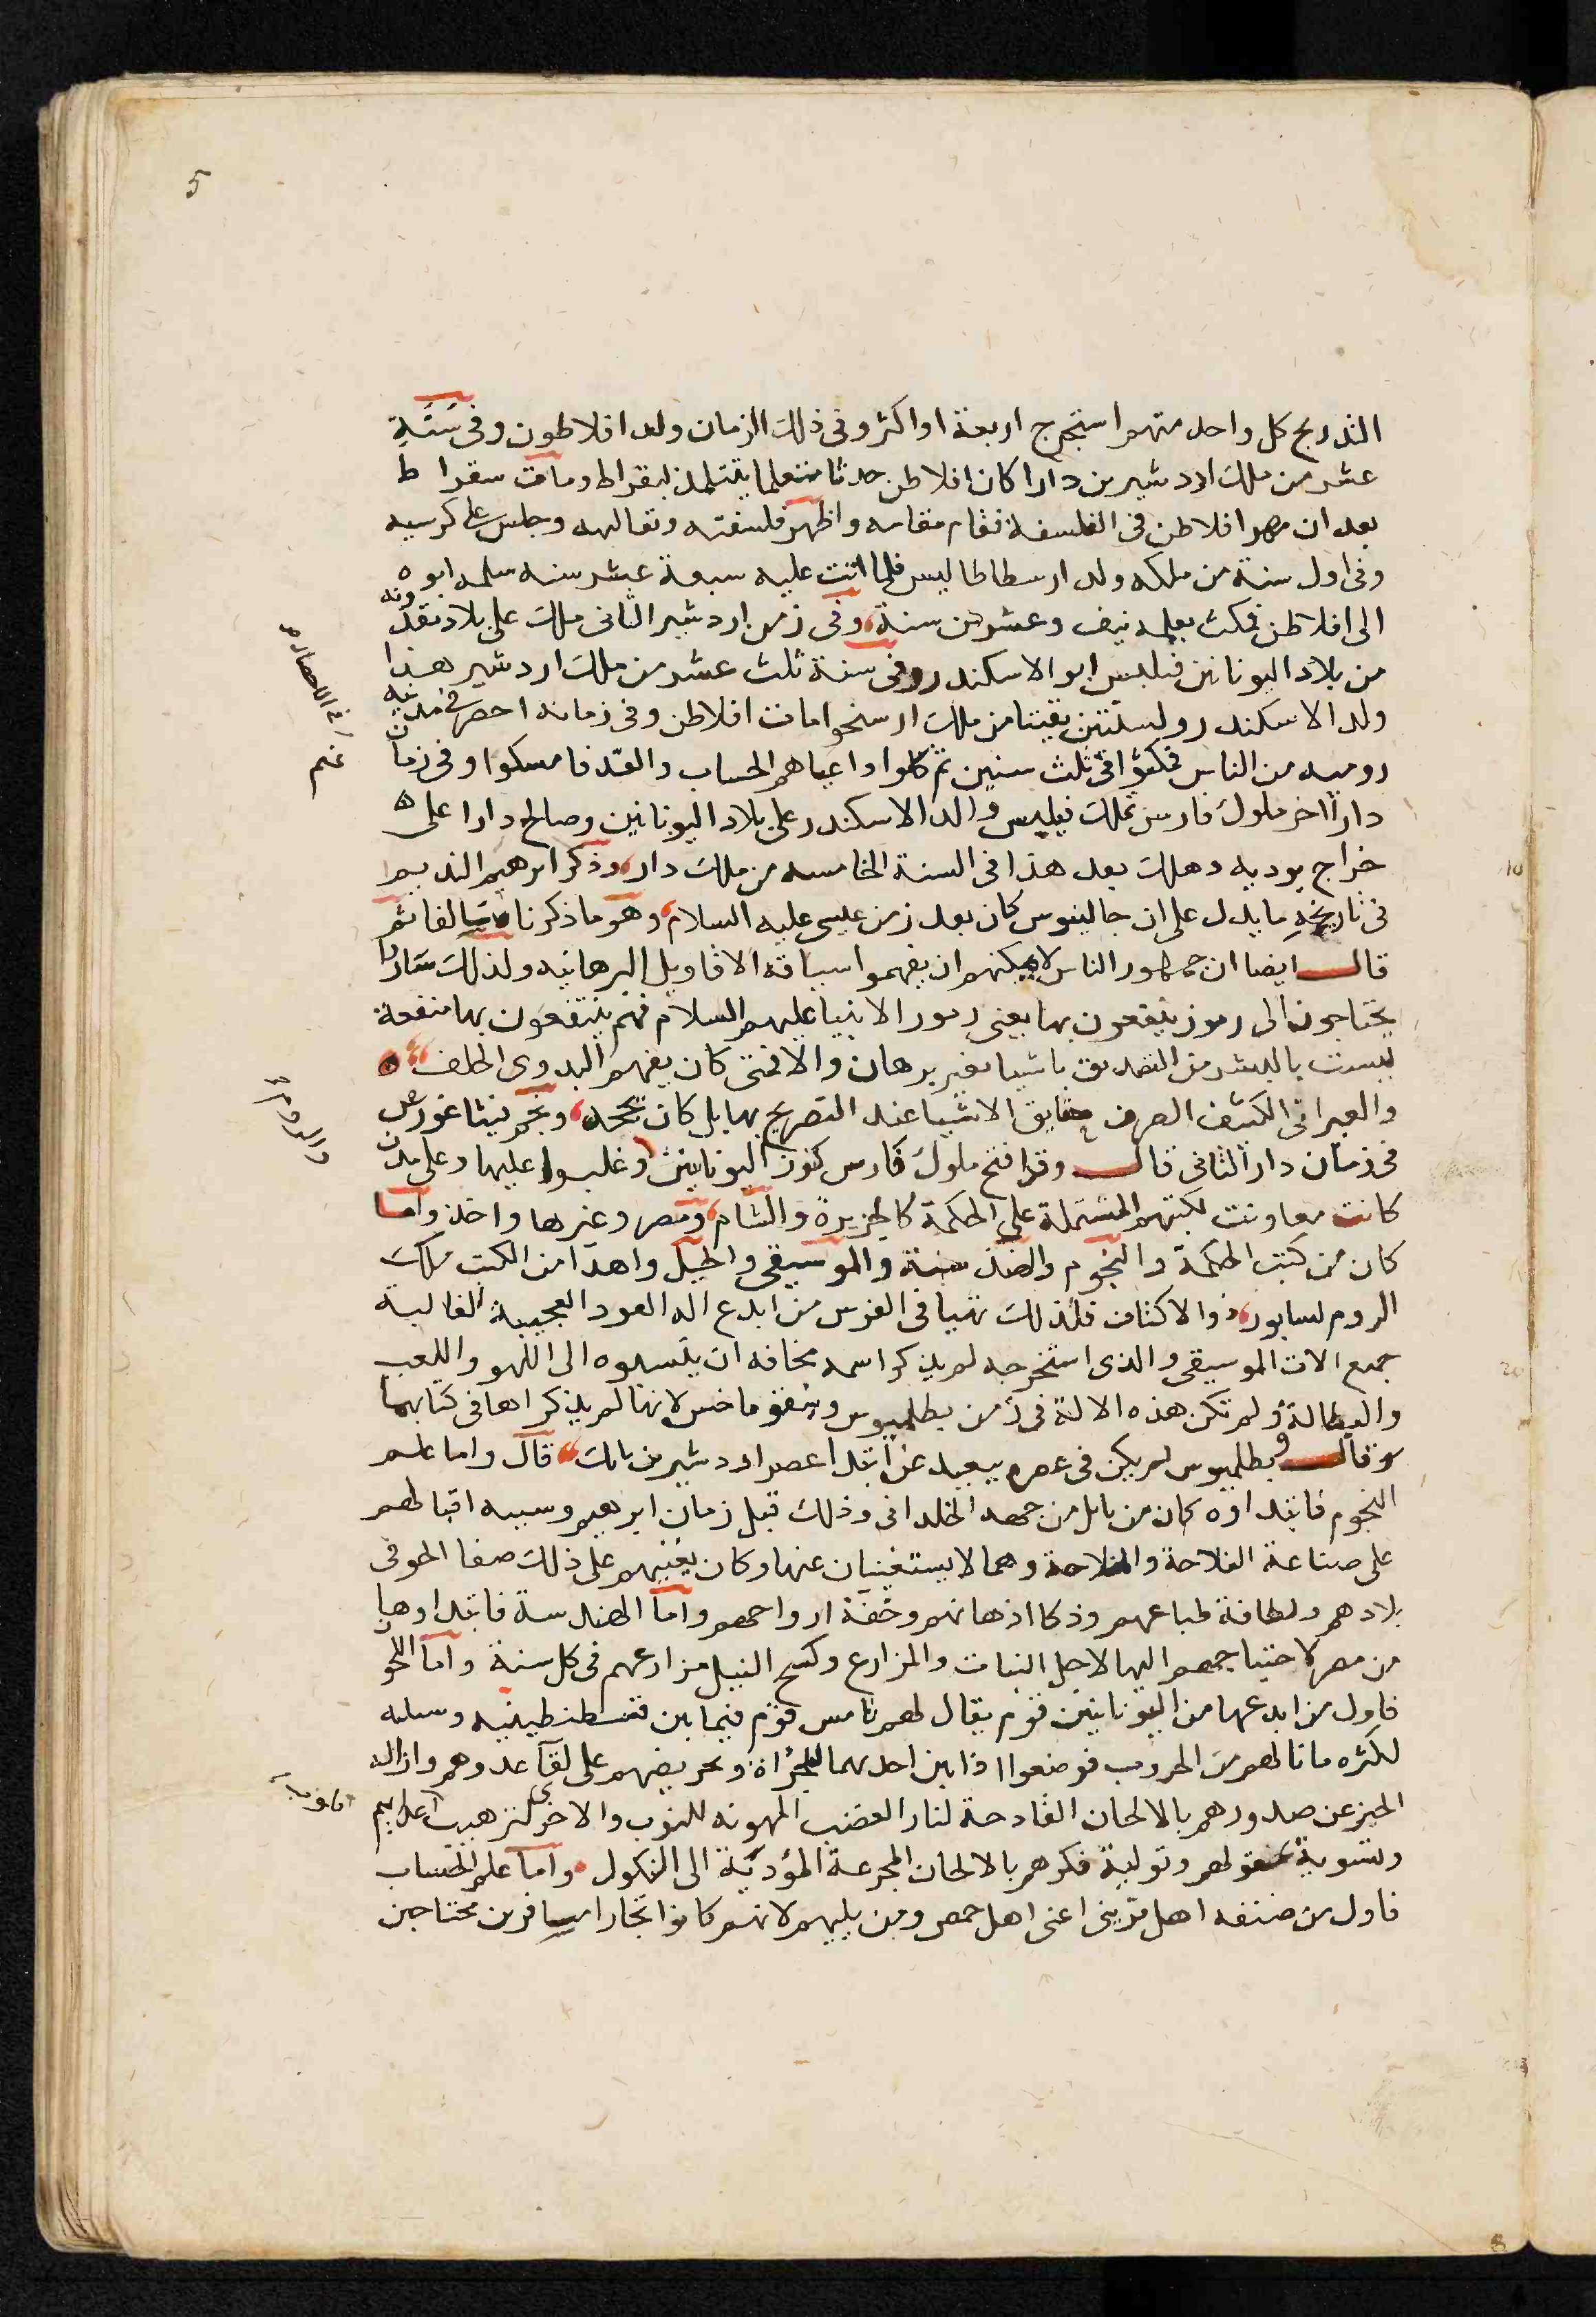 5
التدريج كل واحد منهم استخرج اربعة او اكثر وفى ذلك الزمان ولد افلاطون وفى سَنَةِ
عشر من ملك اردشير بن دارا كان افلاطن حدثا متعلما يتتلمذ لبقراط ومات سقراط
بعد ان مهر افلاطن فى الفلسفة فقام مقامه واظهر فلسفته وتعاليمه وجلس على كرسيه
وفى اول سنة من ملكه ولد ارسطاطاليس فلما اتت عليه سبعة عشر سنه سلمه ابوه
الى افلاطن فمكث يعلمه نيف وعشرين سنة وفى زمن اردشير الثانى ملك على بلاد مقدونه
من بلاد اليونانين فيلبس ابو الاسكندر وفى سنة ثلث عشر من ملك اردشير هذا
ولد الاسكندر ولسنتين بقيتا من ملك ارسنحوا مات افلاطن وفى زمانه احصر فى مدينة
روميه من الناس فمكثوا فى ثلث سنين ثم كلوا واعياهم الحساب والعد فامسكوا وفى زمان
دارا اخر ملوك فارس تملك فيليس والد الاسكندر على بلاد اليونانين وصالح دارا على
خراج يوديه وهلك بعد هذا فى السنة الخامسه من ملك دارا وذكر ابرهيم النديم
فى تاريخه ما يدل على ان جالينوس كان بعد زمن عيسى عليه السلام وهو ما ذكرنا سالفا ثم
قال ايضا ان جمهور الناس لا يمكنهم ان يفهموا سياقة الاقاويل البرهانيه ولذلك صاروا
يحتاجون الى رموز ينتفعون بها يعنى رموز الانبيا عليهم السلام فهم ينتفعون بها منفعة
ليست باليسر من التصديق باشيا بغير برهان والا فمتى كان يفهم البدوى الخلف
والعبرانى الكشف الصرف حقايق الاشيا عند التصريح بها بل كان يجحده ونجم فيثاغورس
فى زمان دارا الثانى قال وقد افتح ملوك فارس كنوز اليونانيين وغلبوا عليها وعلى مدن
كانت معاونت لكتبهم المشتملة على الحكمة كالجزيرة والشام ومصر وغيرها واخذوا ما
كان من كتب الحكمة والنجوم والهندسة والموسيقى والحيل واهدا من الكتب ملك
الروم لسابور ذو الاكتاف فلذلك تهيا فى الفرس من ابدع اله العود العجيبة الغالبة
جميع الات الموسيقى والذى استخرجه لم يذكر اسمه مخافه ان ينسبوه الى اللهو واللعب
والبطالة ولم تكن هذه الالة فى زمن بطلميوس ونيقوماخس لانهما لم يذكراها فى كتابهما
وقال وبطلميوس لم يكن فى عصره ببعيد عن ابتدا عصر اردشير بن بابك قال واما علم
النجوم فابتداوه كان من بابل من جهه الكلدانى وذلك قبل زمان ابرهيم وسببه اقبالهم
على صناعة الفلاحة والملاحة وهما لا يستغنيان عنها وكان يعينهم على ذلك صفا الجو فى
بلادهم ولطافة طباعهم وذكا اذهانهم وخفة ارواحهم واما الهندسة فابتداوها
من مصر لاحتياجهم اليها لاجل النبات والمزارع وكسح النيل مزارعهم فى كل سنة واما اللحون
فاول من ابدعها من اليونانيين قوم يقال لهم نامس قوم فيما بين قسطنطينيه وسلبه
لكثره ما نالهم من الحروب فوضعوا اذانين احدهما للجرأة وتحريضهم على لقآ عدوهم وازاله
الجبن عن صدورهم بالالحان القادحة لنار الغضب المهونه للحروب والاخرى لترهيب اعدايهم
وتشوية عقولهم وتولية فكرهم بالالحان المجزعة المؤديّة الى النكول واما علم الحساب
فاول من صنفه اهل فرينى اعنى اهل حمص ومن يليهم لانهم كانوا تجارا مسافرين محتاجين